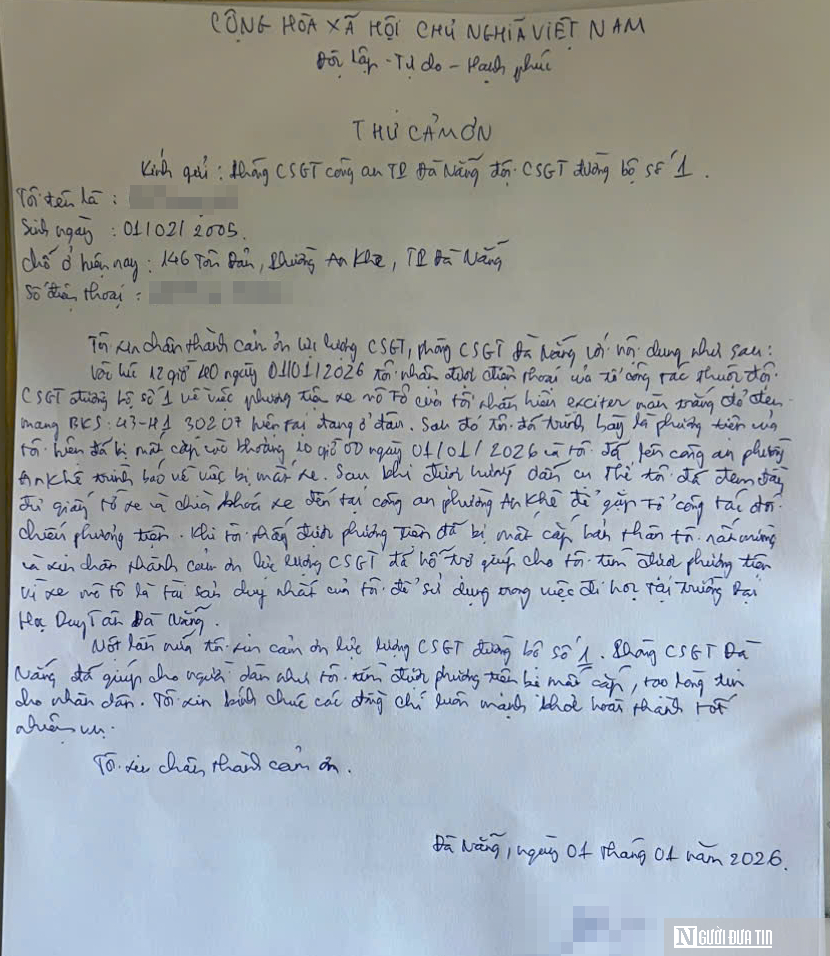 CỘNG HÒA XÃ HỘI CHỦ NGHĨA VIỆT NAM
Độc lập - Tự do - Hạnh phúc
THƯ CẢM ƠN
Kính gửi : Phòng CSGT công an TP Đà Nẵng đội CSGT đường bộ số 1.
Tôi tên là :
Sinh ngày : 01/02/2005.
Chỗ ở hiện nay : 146 Tôn Đản, Phường An Khê, TP Đà Nẵng
Số điện thoại :
Tôi xin chân thành cảm ơn lực lượng CSGT, phòng CSGT Đà Nẵng với nội dung như sau:
Vào lúc 12 giờ 40 ngày 01/01/2026 tôi nhận được điện thoại của tổ công tác thuộc đội
CSGT đường bộ số 1 về việc phương tiện xe mô tô của tôi nhãn hiệu exciter màu trắng đỏ đen
mang BKS: 43-H1 30207 hiện tại đang ở đâu. Sau đó tôi đã trình bày là phương tiện của
tôi hiện đã bị mất cắp vào khoảng 10 giờ 00 ngày 01/01/2026 và tôi đã lên công an phường
An Khê trình báo về việc bị mất xe. Sau khi được hướng dẫn cụ thể tôi đã đem đầy
đủ giấy tờ xe và chìa khoá xe đến tại công an phường An Khê để gặp tổ công tác đối
chiếu phương tiện. Khi tôi thấy được phương tiện đã bị mất cắp bản thân tôi rất mừng
và xin chân thành cảm ơn lực lượng CSGT đã hỗ trợ giúp cho tôi tìm được phương tiện
vì xe mô tô là tài sản duy nhất của tôi để sử dụng trong việc đi học tại trường Đại
Học Duy Tân Đà Nẵng.
Một lần nữa tôi xin cảm ơn lực lượng CSGT đường bộ số 1. Phòng CSGT Đà
Nẵng đã giúp cho người dân như tôi tìm được phương tiện bị mất cắp, tạo lòng tin
cho nhân dân. Tôi xin kính chúc các đồng chí luôn mạnh khoẻ hoàn thành tốt
nhiệm vụ.
Tôi xin chân thành cảm ơn.
Đà Nẵng, ngày 01 tháng 01 năm 2026.
NGƯỜI ĐƯA TIN